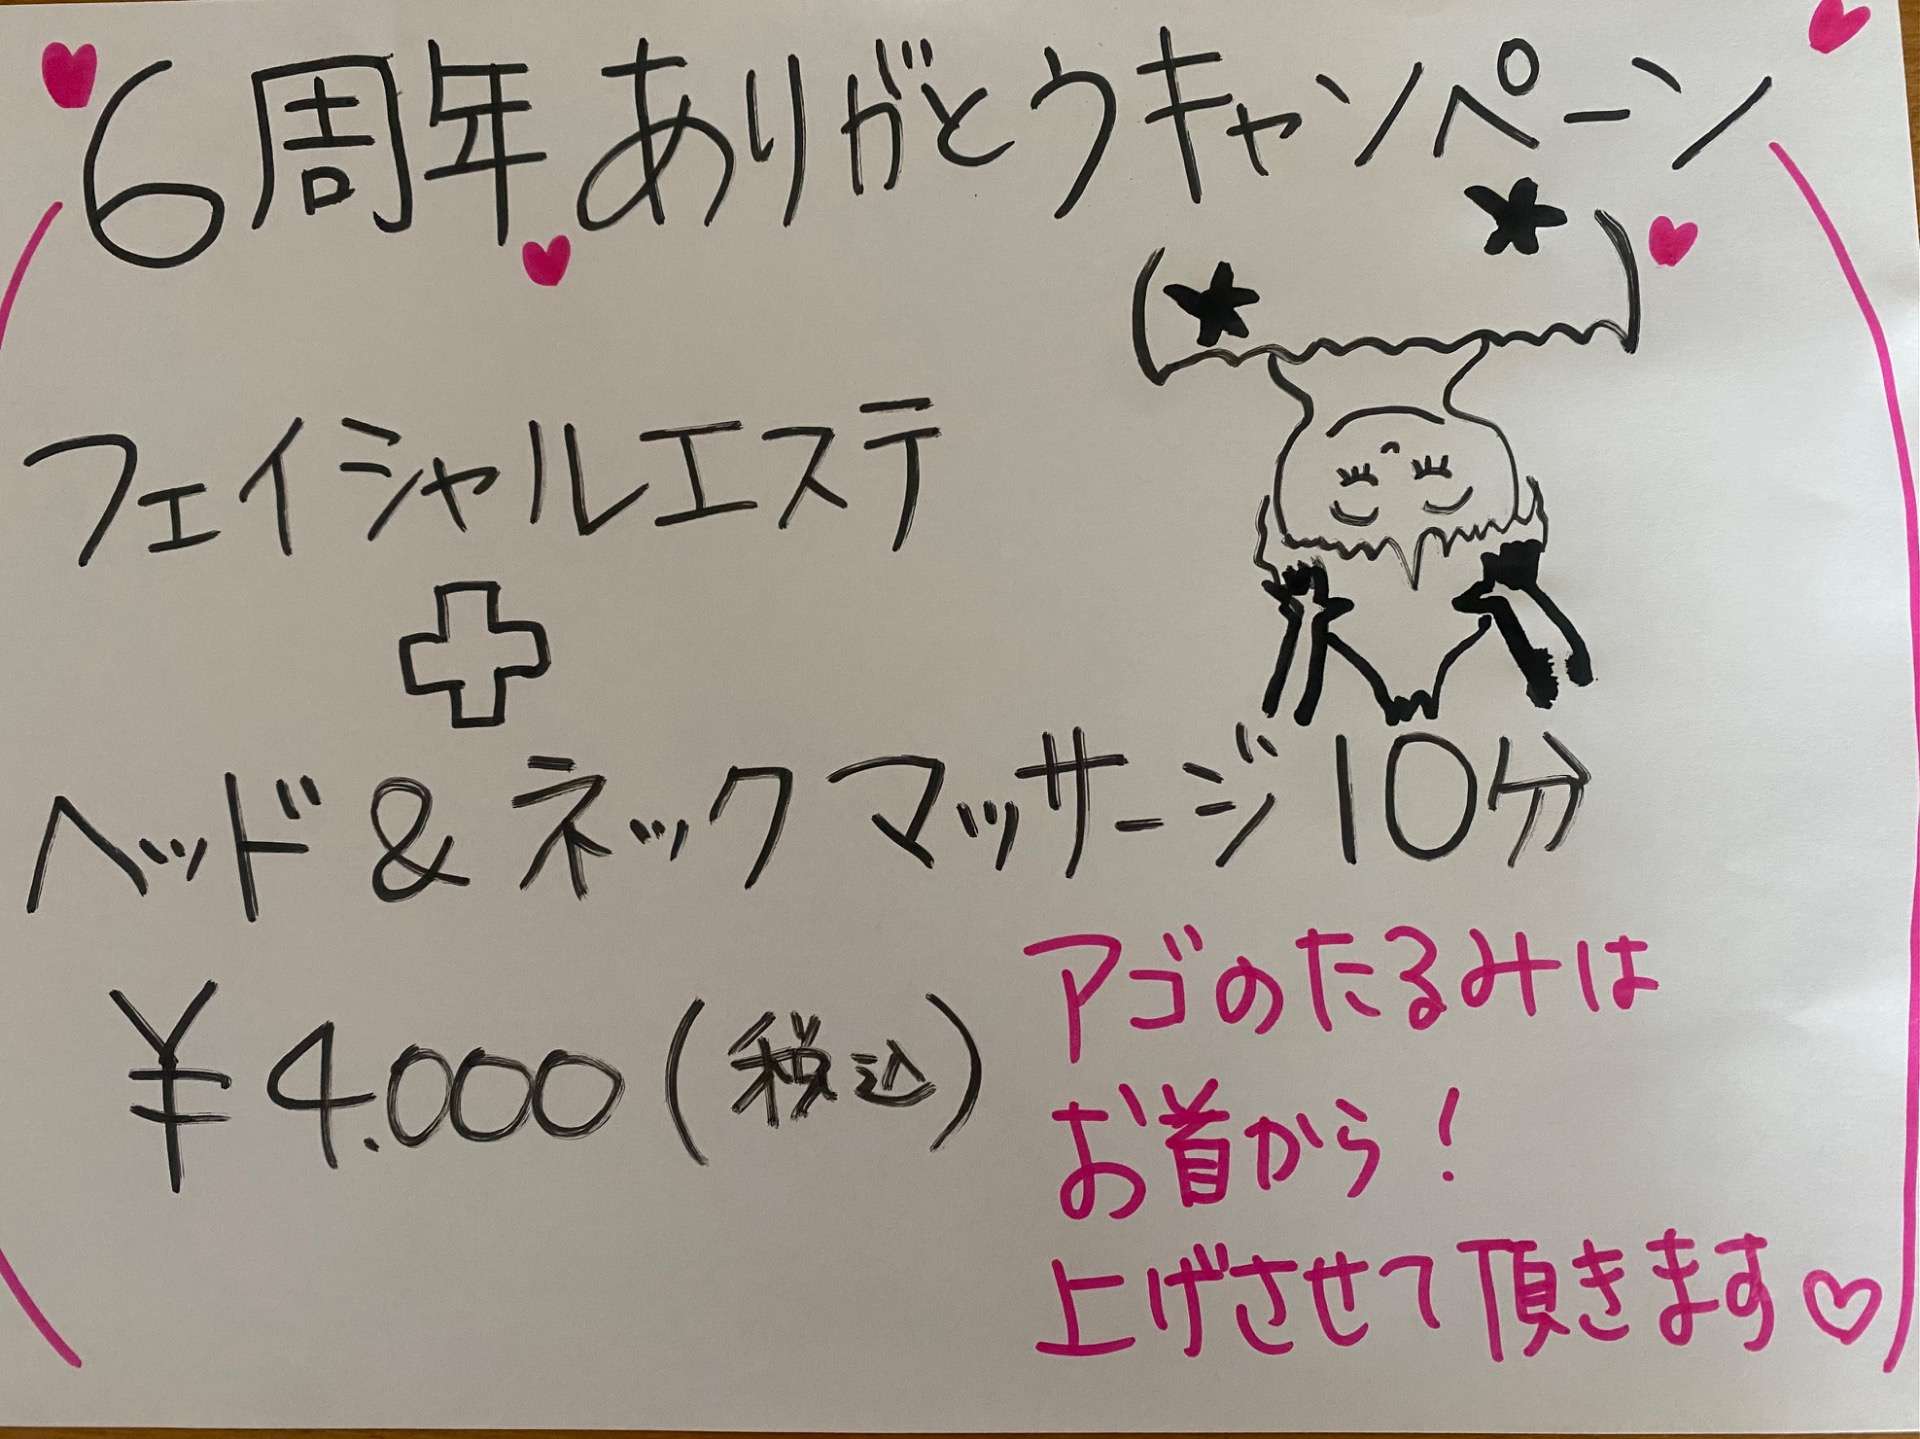 6周年ありがとうキャンペーン
フェイシャルエステ
+
ヘッド&ネックマッサージ10分
¥4.000(税込)
アゴのたるみは
お首から!
上げさせて頂きます♡